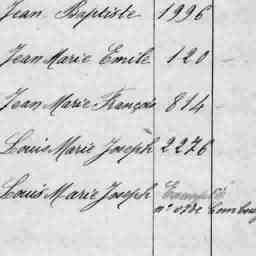 Jean Baptiste 1996
Jean Marie Emile 120
Jean Marie François 814
Louis Marie Joseph 2276
Louis Marie Joseph Exempté
n° de Combourg